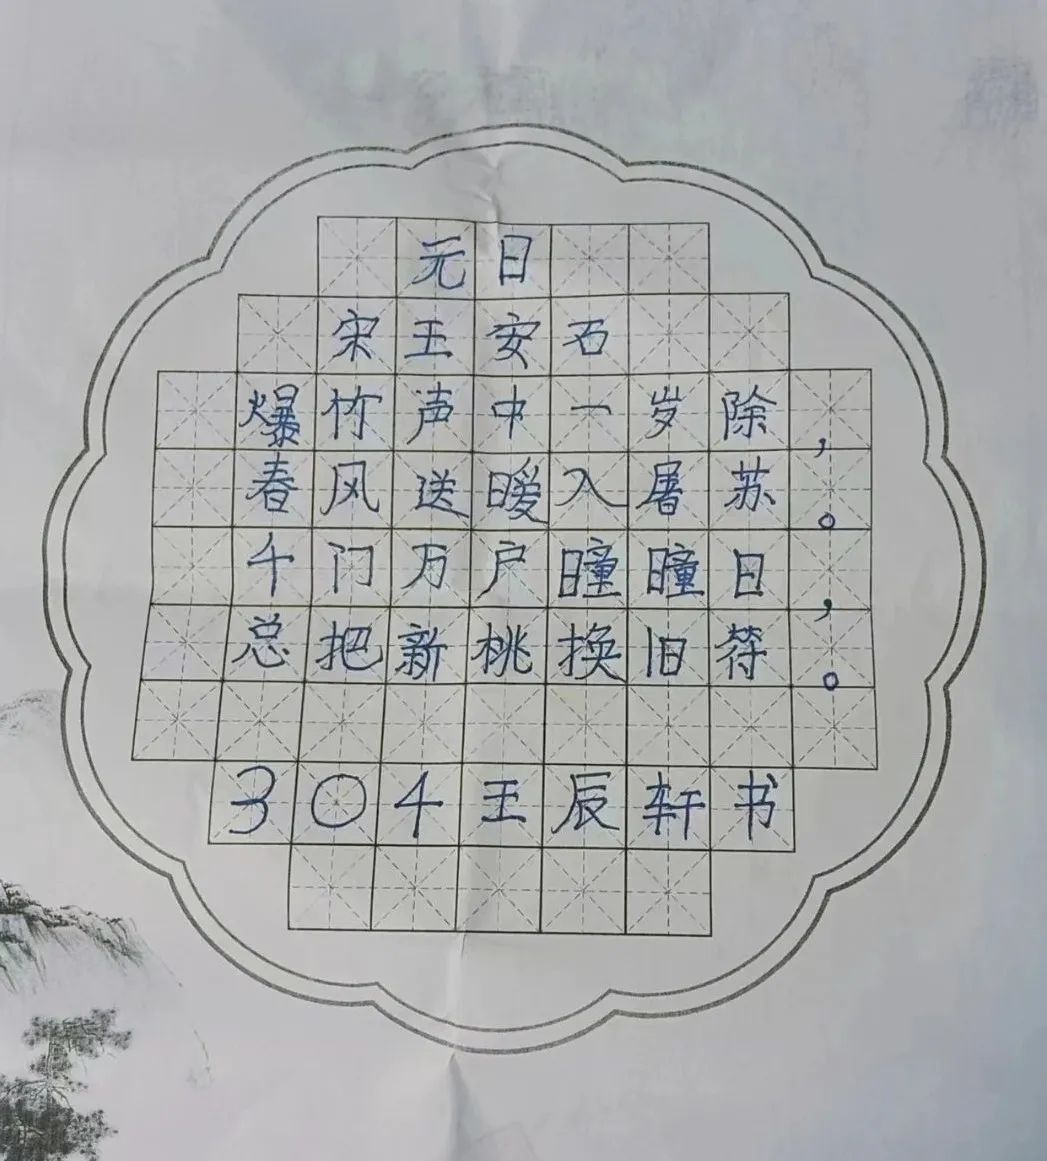 元日
宋王安石
爆竹声中一岁除，
春风送暖入屠苏。
千门万户曈曈日，
总把新桃换旧符。
304王辰轩书